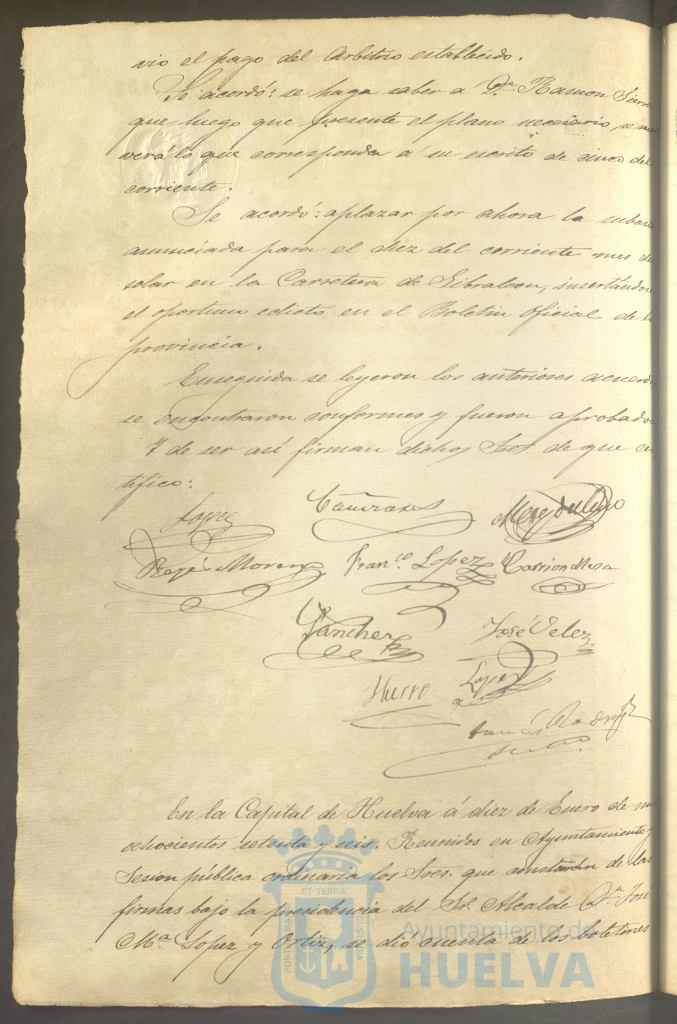 vio el pago del arbitrio establecido.
Se acordó: se haga saber a Dn Ramon
que luego que presente el plano necesario, se
verá lo que corresponda á su escrito de cinco del
corriente.
Se acordó: aplazar por ahora la
anunciada para el diez del corriente mes de
solar en la Carretera de Gibraleon, insertándose
el oportuno edicto en el Boletin Oficial de la
provincia.
Enseguida se leyeron los anteriores
se encontraron conformes y fueron aprobados
Y de ser así firman dichos Sres. de que
tifico:
Lopez
Reyes Moreno Franco Lopez Carrion Mesa
Sanchez José Velez
Lopez
En la Capital de Huelva á diez de Enero de mil
ochocientos setenta y seis. Reunidos en Ayuntamiento y
Sesion pública ordinaria los Sres. que constarán de las
firmas bajo la presidencia del Sr. Alcalde Dn José
Ma Lopez y Ortiz, se dio cuenta de los boletines
ET TERRÆ
Ayuntamiento de
HUELVA